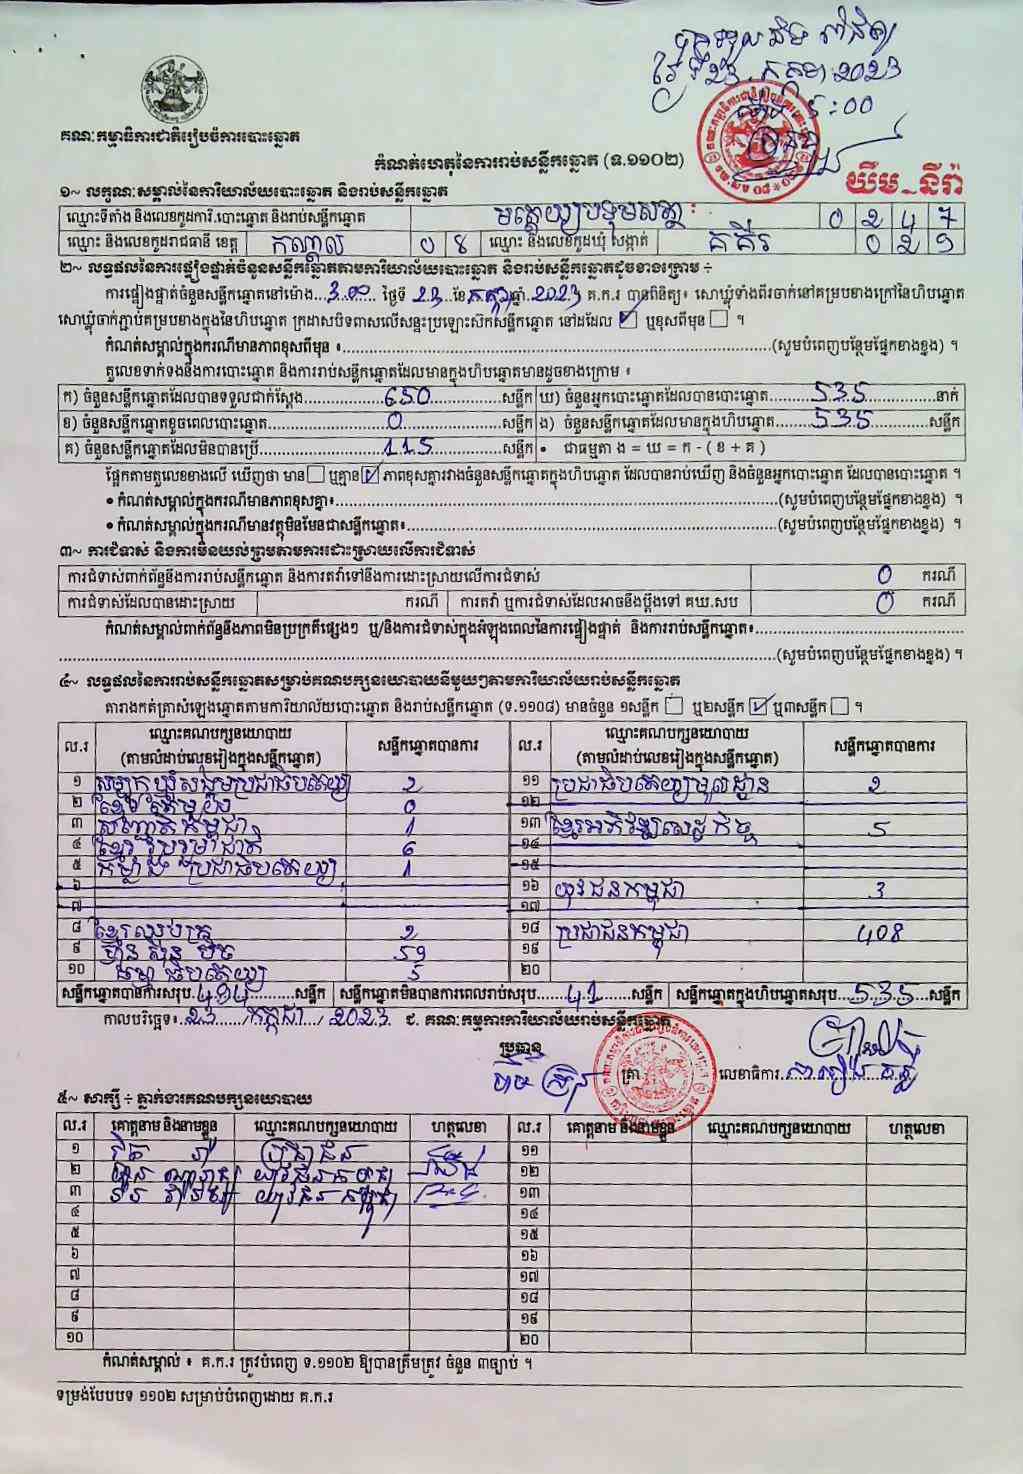 ថ្ងៃទី23 កក្កដា 2023
5:00
គណៈកម្មាធិការជាតិរៀបចំការបោះឆ្នោត
កំណត់ហេតុនៃការរាប់សន្លឹកឆ្នោត (ទ.១១០២)
យឹម-នីរ៉ា
១~ លក្ខណៈសម្គាល់នៃការិយាល័យបោះឆ្នោត និងរាប់សន្លឹកឆ្នោត
ឈ្មោះទីតាំង និងលេខកូដការិ.បោះឆ្នោត និងរាប់សន្លឹកឆ្នោត មត្តេយ្យបទុមសត្ថា 0 2 4 7
ឈ្មោះ និងលេខកូដរាជធានី ខេត្ត កណ្តាល 0 8 ឈ្មោះ និងលេខកូដឃុំ សង្កាត់ គគីរ 0 2 9
២~ លទ្ធផលនៃការផ្ទៀងផ្ទាត់ចំនួនសន្លឹកឆ្នោតតាមការិយាល័យបោះឆ្នោត និងរាប់សន្លឹកឆ្នោតដូចខាងក្រោម ÷
ការផ្ទៀងផ្ទាត់ចំនួនសន្លឹកឆ្នោតនៅម៉ោង...3.00... ថ្ងៃទី 23 ខែ កក្កដា ឆ្នាំ 2023 គ.ក.រ បានពិនិត្យ៖ សោឃ្លុំទាំងពីរចាក់នៅគម្របខាងក្រៅនៃហិបឆ្នោត
សោឃ្លុំចាក់ភ្ជាប់គម្របខាងក្នុងនៃហិបឆ្នោត ក្រដាសបិទពាសលើសន្ទះប្រឡោះស៊កសន្លឹកឆ្នោត នៅដដែល ☑ ឬខុសពីមុន ☐ ។
កំណត់សម្គាល់ក្នុងករណីមានភាពខុសពីមុន ៖ (សូមបំពេញបន្ថែមផ្នែកខាងខ្នង) ។
តួលេខទាក់ទងនឹងការបោះឆ្នោត និងការរាប់សន្លឹកឆ្នោតដែលមានក្នុងហិបឆ្នោតមានដូចខាងក្រោម ៖
ក) ចំនួនសន្លឹកឆ្នោតដែលបានទទួលជាក់ស្តែង 650 សន្លឹក ឃ) ចំនួនអ្នកបោះឆ្នោតដែលបានបោះឆ្នោត 535 នាក់
ខ) ចំនួនសន្លឹកឆ្នោតខូចពេលបោះឆ្នោត 0 សន្លឹក ង) ចំនួនសន្លឹកឆ្នោតដែលមានក្នុងហិបឆ្នោត 535 សន្លឹក
គ) ចំនួនសន្លឹកឆ្នោតដែលមិនបានប្រើ 115 សន្លឹក • ជាធម្មតា ង = ឃ = ក - ( ខ + គ )
ផ្អែកតាមតួលេខខាងលើ ឃើញថា មាន ☐ ឬគ្មាន ☑ ភាពខុសគ្នារវាងចំនួនសន្លឹកឆ្នោតក្នុងហិបឆ្នោត ដែលបានរាប់ឃើញ និងចំនួនអ្នកបោះឆ្នោត ដែលបានបោះឆ្នោត ។
• កំណត់សម្គាល់ក្នុងករណីមានភាពខុសគ្នា៖ (សូមបំពេញបន្ថែមផ្នែកខាងខ្នង) ។
• កំណត់សម្គាល់ក្នុងករណីមានវត្ថុមិនមែនជាសន្លឹកឆ្នោត៖ (សូមបំពេញបន្ថែមផ្នែកខាងខ្នង) ។
៣~ ការជំទាស់ និងការមិនយល់ព្រមតាមការដោះស្រាយលើការជំទាស់
ការជំទាស់ពាក់ព័ន្ធនឹងការរាប់សន្លឹកឆ្នោត និងការតវ៉ាទៅនឹងការដោះស្រាយលើការជំទាស់ 0 ករណី
ការជំទាស់ដែលបានដោះស្រាយ ករណី ការតវ៉ា ឬការជំទាស់ដែលអាចនឹងប្តឹងទៅ គឃ.សប 0 ករណី
កំណត់សម្គាល់ពាក់ព័ន្ធនឹងភាពមិនប្រក្រតីផ្សេងៗ ឬ/និងការជំទាស់ក្នុងអំឡុងពេលនៃការផ្ទៀងផ្ទាត់ និងការរាប់សន្លឹកឆ្នោត៖
(សូមបំពេញបន្ថែមផ្នែកខាងខ្នង) ។
៤~ លទ្ធផលនៃការរាប់សន្លឹកឆ្នោតសម្រាប់គណបក្សនយោបាយនីមួយៗតាមការិយាល័យរាប់សន្លឹកឆ្នោត
តារាងកត់ត្រាសំឡេងឆ្នោតតាមការិយាល័យបោះឆ្នោត និងរាប់សន្លឹកឆ្នោត (ទ.១១០៨) មានចំនួន ១សន្លឹក ☐ ឬ២សន្លឹក ☑ ឬ៣សន្លឹក ☐ ។
ល.រ ឈ្មោះគណបក្សនយោបាយ (តាមលំដាប់លេខរៀងក្នុងសន្លឹកឆ្នោត) សន្លឹកឆ្នោតបានការ ល.រ ឈ្មោះគណបក្សនយោបាយ (តាមលំដាប់លេខរៀងក្នុងសន្លឹកឆ្នោត) សន្លឹកឆ្នោតបានការ
១ សំបុកឃ្មុំសង្គមប្រជាធិបតេយ្យ 2 ១១ ប្រជាធិបតេយ្យមូលដ្ឋាន 2
២ ខ្មែរតែមួយ 0 ១២
៣ សញ្ជាតិកម្ពុជា 1 ១៣ ខ្មែរអភិវឌ្ឍសេដ្ឋកិច្ច 5
៤ ខ្មែររួបរួមជាតិ 6 ១៤
៥ កម្លាំងប្រជាធិបតេយ្យ 1 ១៥
៦ ១៦ យុវជនកម្ពុជា 3
៧ ១៧
៨ ខ្មែរឈប់ក្រ 2 ១៨ ប្រជាជនកម្ពុជា 408
៩ ហ្វ៊ុនស៊ិនប៉ិច 59 ១៩
១០ ធម្មាធិបតេយ្យ 5 ២០
សន្លឹកឆ្នោតបានការសរុប 494 សន្លឹក សន្លឹកឆ្នោតមិនបានការពេលរាប់សរុប 41 សន្លឹក សន្លឹកឆ្នោតក្នុងហិបឆ្នោតសរុប 535 សន្លឹក
កាលបរិច្ឆេទ៖ 23 / កក្កដា / 2023 ជ. គណៈកម្មការការិយាល័យរាប់សន្លឹកឆ្នោត
ប្រធាន ត្រា លេខាធិការ
៥~ សាក្សី ÷ ភ្នាក់ងារគណបក្សនយោបាយ
ល.រ គោត្តនាម និងនាមខ្លួន ឈ្មោះគណបក្សនយោបាយ ហត្ថលេខា ល.រ គោត្តនាម និងនាមខ្លួន ឈ្មោះគណបក្សនយោបាយ ហត្ថលេខា
១ ប្រជាជន ១១
២ យុវជនកម្ពុជា ១២
៣ យុវជនកម្ពុជា ១៣
៤ ១៤
៥ ១៥
៦ ១៦
៧ ១៧
៨ ១៨
៩ ១៩
១០ ២០
កំណត់សម្គាល់ ៖ គ.ក.រ ត្រូវបំពេញ ទ.១១០២ ឱ្យបានត្រឹមត្រូវ ចំនួន ៣ច្បាប់ ។
ទម្រង់បែបបទ ១១០២ សម្រាប់បំពេញដោយ គ.ក.រ